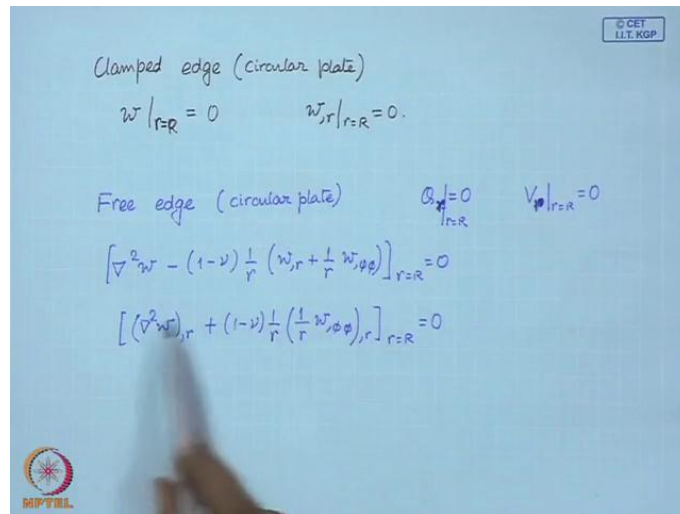 © CET
I.I.T. KGP
Clamped edge (circular plate)
w|r=R = 0 w,r|r=R = 0.
Free edge (circular plate) |r=R = 0 V |r=R = 0
[∇²w − (1−ν) 1/r (w,r + 1/r w,ϕϕ)]r=R = 0
[(∇²w),r + (1−ν) 1/r (1/r w,ϕϕ),r]r=R = 0
NPTEL